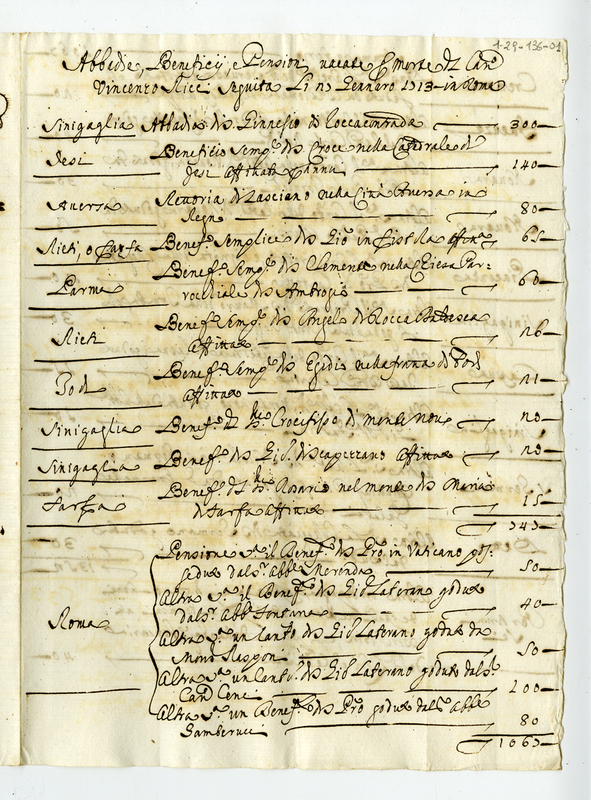 1-29-136-01
Abbadie, Beneficij, e Pensioni vacate p morte del Can.co
Vincenzo Ricci seguita li 20 Gennaro 1713 in Roma
Sinigaglia Abbadia di S. Ginnesio di Roccacontrada 300
Jesi Beneficio Semp.e di S. Croce nella Catedrale di
Jesi affittato 140
Aversa Rettoria di Casciano nella Città Aversa in
Regno 80
Rieti, o Farfa Benef.o Semplice di S. Gio in Fistola affitta 65
Parma Benef.o Semp.e di S. Clemente nella Chiesa Par:
rochiale di S. Ambrogio 60
Rieti Benef.o Semp.e di S. Angelo di Rocca
affitta 26
Todi Benef.o Semp.e di S. Egidio nella di Todi
affitta 21
Sinigaglia Benef.o del S.mo Crocifisso di monte novo 20
Sinigaglia Benef.o di S. Gio. di Scapezzano affitta 20
Farfa Benef.o del S.mo Rosario nel monte di S. Maria
di Farfa affitta 15
745
Roma Pensione s.a il Benef.o di S. P.ro in Vaticano pos:
seduto dal S.r Abb.e Merenda 50
Altra s.a il Benef.o di S. Gio Laterano goduto
dal S.r Abb.e Fontana 40
Altra s.a un Can.to di S. Gio Laterano goduto da
Mons.r Rasponi 50
Altra s.a un Can.to di S. Gio Laterano goduto dal S.r
Can.co Cenci 100
Altra s.a un Benef.o di S. P.ro goduto dal S.r Abb.e
Gamberucci 80
1065